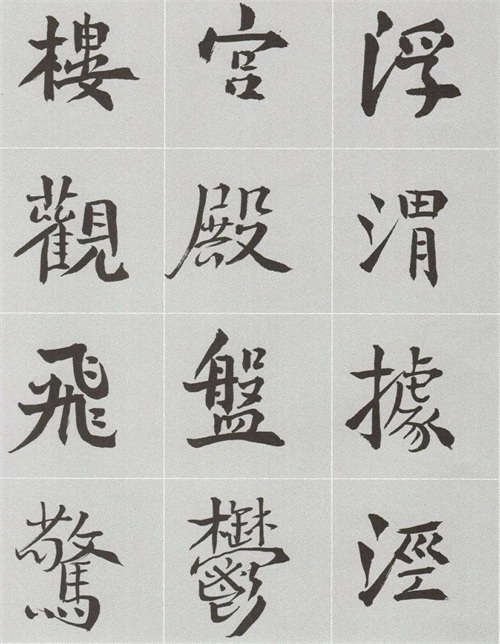 浮渭據涇
宮殿盤鬱
樓觀飛驚